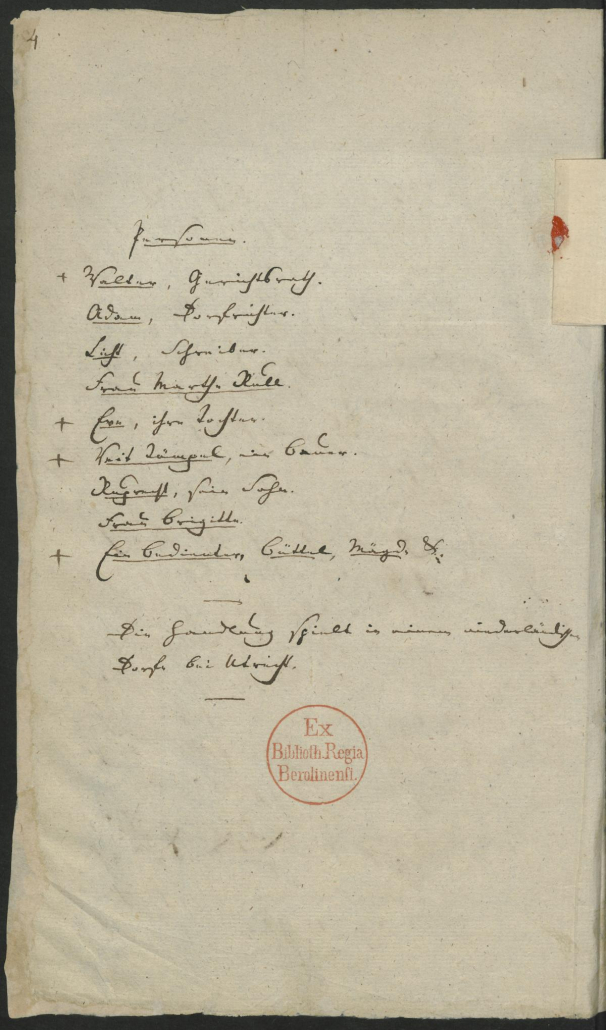 4
Personen.
+ Walter, Gerichtsrath.
Adam, Dorfrichter.
Licht, Schreiber.
Frau Marthe Rull.
+ Eve, ihre Tochter.
+ Veit Tümpel, ein Bauer.
Ruprecht, sein Sohn.
Frau Brigitte.
+ Ein Bedienter, Büttel, Mägde &.
Die Handlung spielt in einem niederländischen
Dorfe bei Utrecht.
Ex
Biblioth. Regia
Berolinensi.